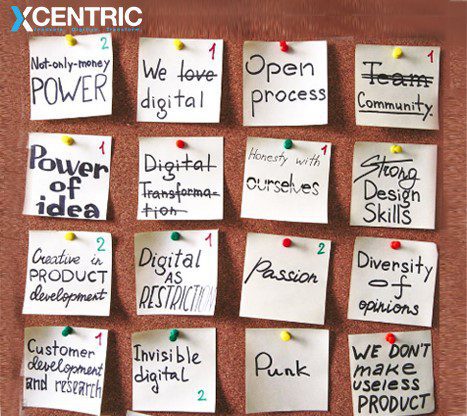 XCENTRIC
Innovate. Digitize. Transform.
2
Not-only-money
POWER
1
We love
digital
1
Open
process
1
Team
Community.
1
Power
of
idea
Digital
Transforma-
tion
1
Honesty with
ourselves
Strong
Design
Skills
2
Creative in
PRODUCT
development
1
Digital
AS
RESTRICTION
2
Passion
Diversity
of
opinions
1
Customer
development
and research
Invisible
digital
2
Punk
WE DON'T
make
useless
PRODUCT